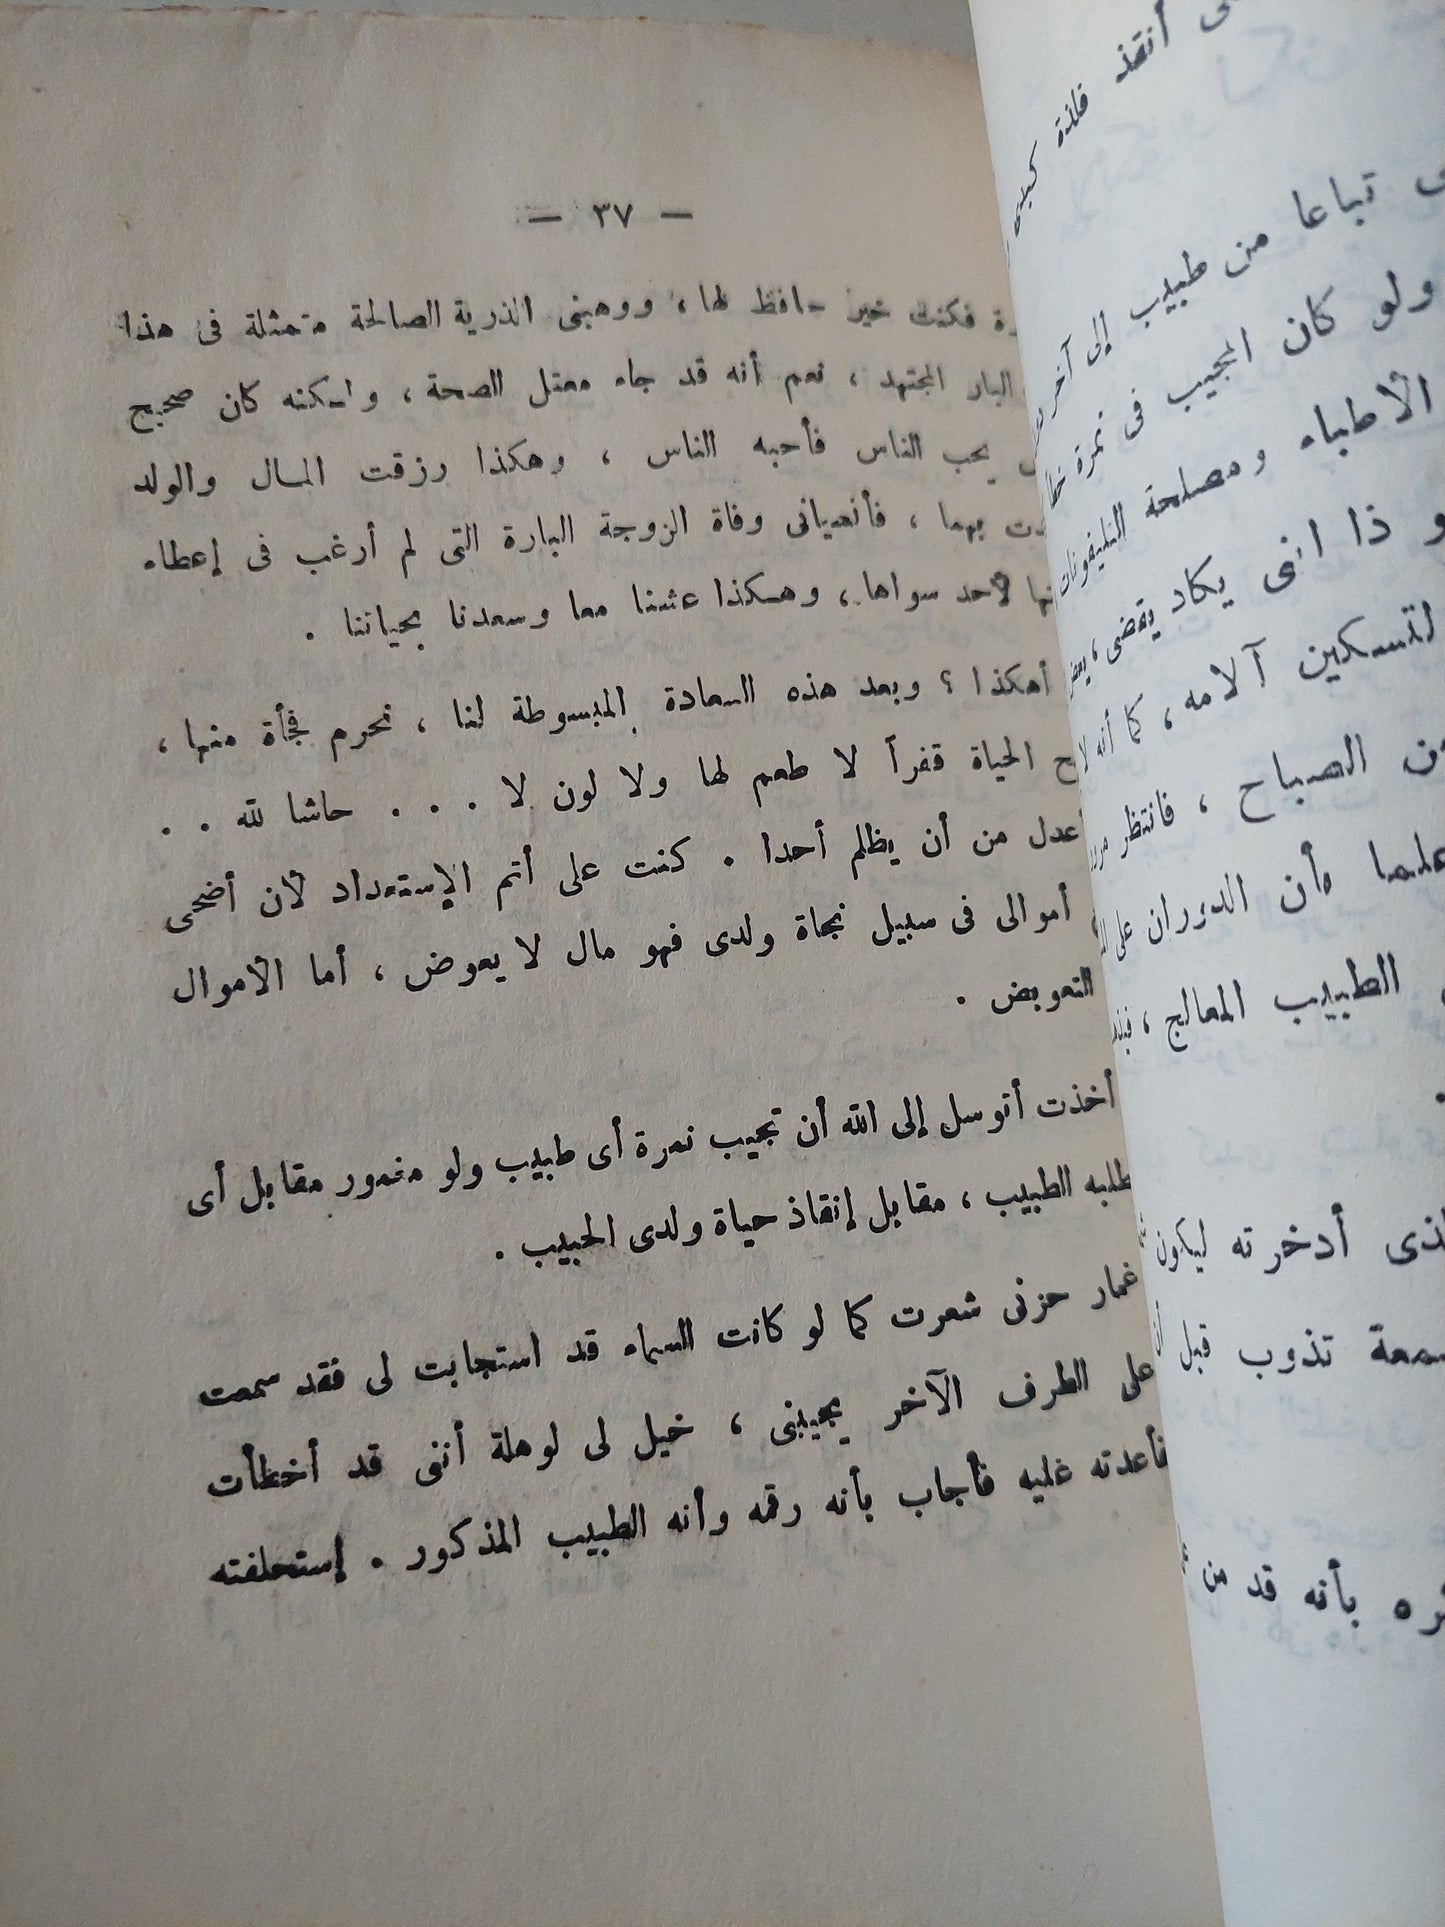 — ٣٧ —
فكنت خير حافظ لها، ووهبنى الذرية الصالحة متمثلة فى هذا
البار المجتهد ، نعم أنه قد جاء معتل الصحة ، ولكنه كان صحيح
يحب الناس فأحبه الناس ، وهكذا رزقت المال والولد
بهما ، فأنسيانى وفاة الزوجة البارة التى لم أرغب فى إعطاء
لأحد سواها ، وهكذا عشنا معا وسعدنا بحياتنا .
أهكذا ؟ وبعد هذه السعادة المبسوطة لنا ، نحرم فجأة منها ،
الحياة قفراً لا طعم لها ولا لون لا . . . حاشا لله . .
أعدل من أن يظلم أحدا . كنت على أتم الإستعداد لأن أضحى
أموالى فى سبيل نجاة ولدى فهو مال لا يعوض ، أما الأموال
التعويض .
أخذت أتوسل إلى الله أن تجيب نمرة أى طبيب ولو مغمور مقابل أى
يطلبه الطبيب ، مقابل إنقاذ حياة ولدى الحبيب .
غمار حزنى شعرت كما لو كانت السماء قد استجابت لى فقد سمعت
على الطرف الآخر يجيبنى ، خيل لى لوهلة أننى قد أخطأت
فأعدته عليه فأجاب بأنه رقمه وأنه الطبيب المذكور . إستحلفته
أنقذ فلذة كبدى
تباعا من طبيب إلى آخر
ولو كان المجيب فى نمرة خطأ
الأطباء ومصلحة التليفونات
يكاد يقضى ،
لتسكين آلامه ، كما أنه
الصباح ، فانتظر
علما بأن الدوران على
الطبيب المعالج ،
أدخرته ليكون
تذوب قبل
بأنه قد من